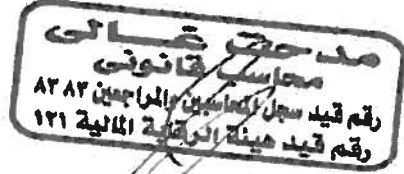 مدحت غالى
محاسب قانونى
رقم قيد سجل المحاسبين والمراجعين ٨٣٨٣
رقم قيد هيئة الرقابة المالية ١٢١